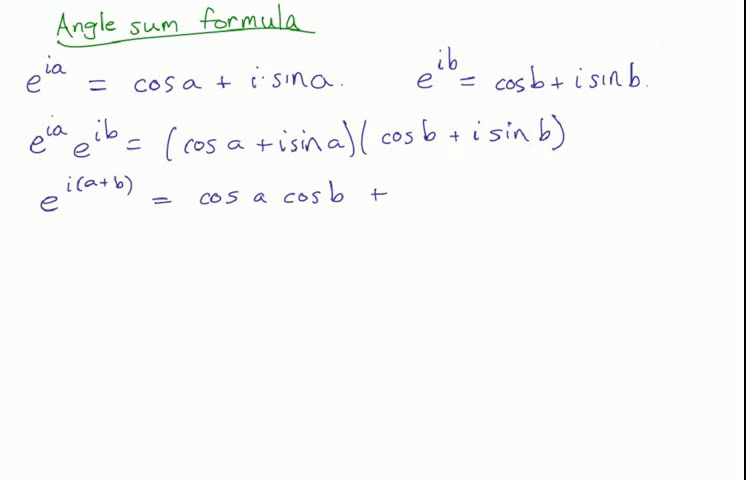 Angle sum formula
e^{ia} = cos a + i·sin a. e^{ib} = cos b + i sin b.
e^{ia} e^{ib} = (cos a + i sin a)(cos b + i sin b)
e^{i(a+b)} = cos a cos b +